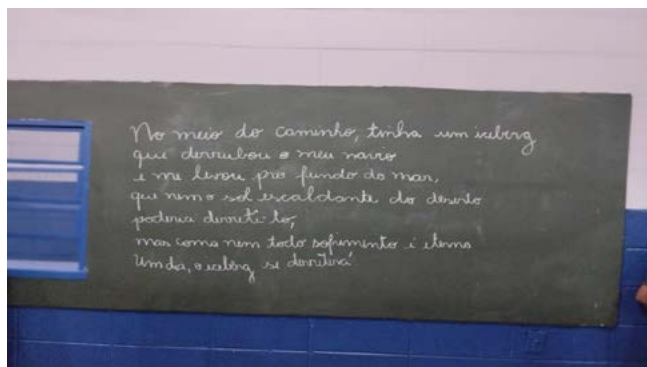 No meio do caminho, tinha um iceberg
que derrubou o meu navio
e me levou pro fundo do mar,
que nem o sol escaldante do deserto
poderia derretê-lo,
mas como nem todo sofrimento é eterno
Um dia, o iceberg se derreterá